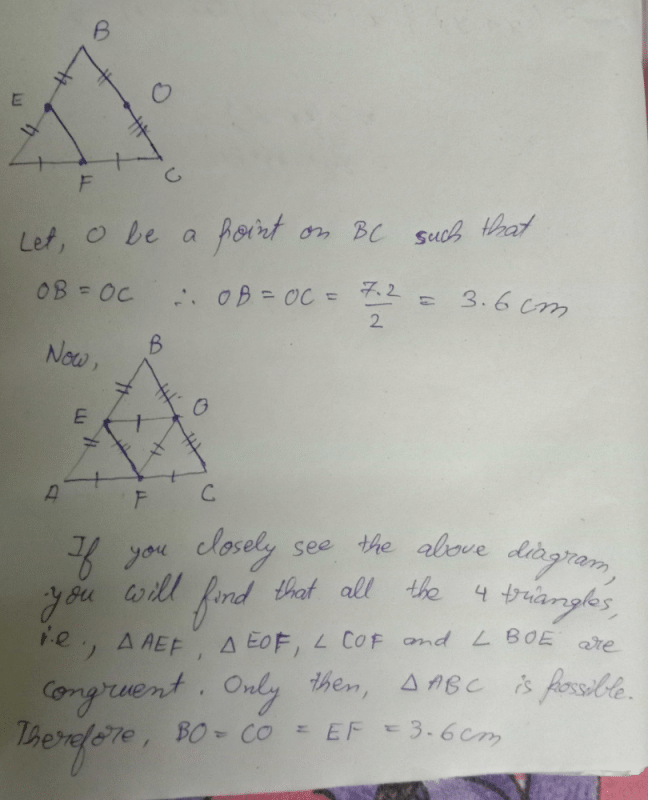 B
E
O
F
C
Let, O be a point on BC such that
OB = OC ∴ OB = OC = 7.2/2 = 3.6 cm
Now,
B
E
O
A
F
C
If you closely see the above diagram,
you will find that all the 4 triangles,
i.e., △AEF, △EOF, ∠COF and ∠BOE are
congruent. Only then, △ABC is possible.
Therefore, BO = CO = EF = 3.6cm